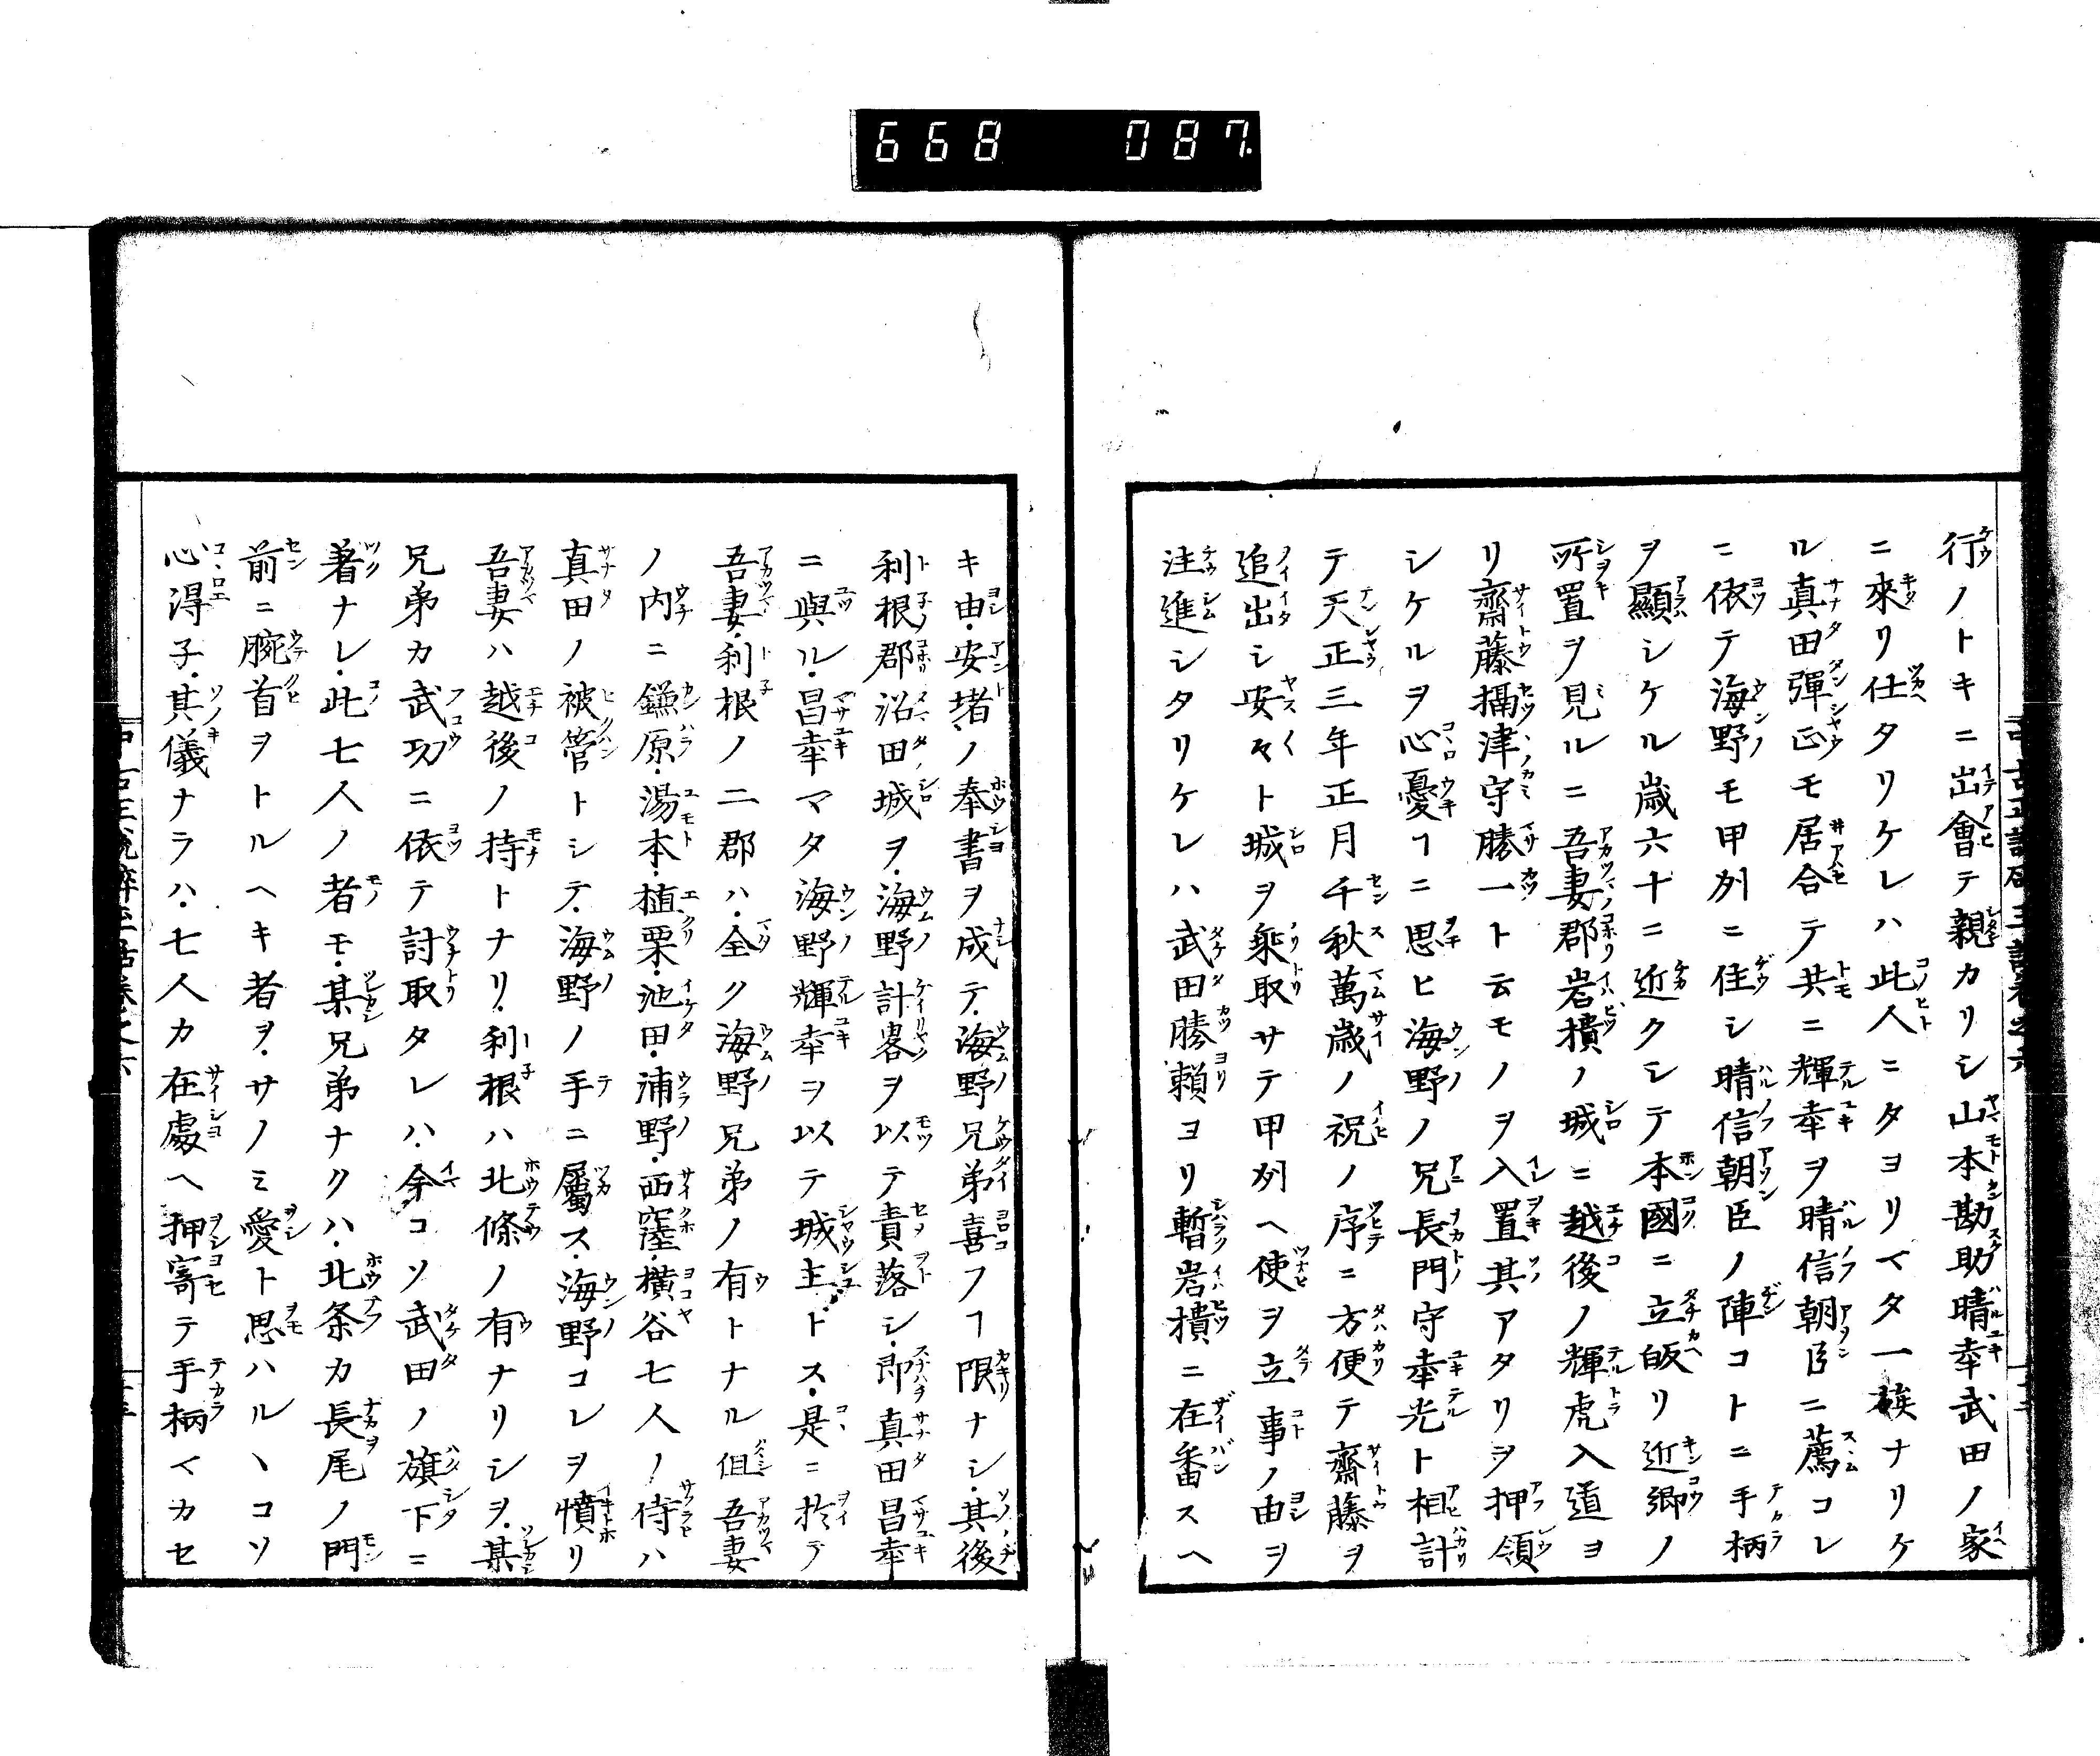 668 087.
行ノトキニ出會テ親カリシ山本勘助晴幸武田ノ家
ニ來リ仕タリケレハ此人ニタヨリマタ一族ナリケ
ル真田彈正モ居合テ共ニ輝幸ヲ晴信朝臣ニ薦コレ
ニ依テ海野モ甲刕ニ住シ晴信朝臣ノ陣コトニ手柄
ヲ顯シケル歳六十ニ近クシテ本國ニ立皈リ近郷ノ
所置ヲ見ルニ吾妻郡岩櫃ノ城ニ越後ノ輝虎入道ヨ
リ齋藤攝津守勝一ト云モノヲ入置其アタリヲ押領
シケルヲ心憂ヿニ思ヒ海野ノ兄長門守幸光ト相計
テ天正三年正月千秋萬歳ノ祝ノ序ニ方便テ齋藤ヲ
追出シ安々ト城ヲ乘取サテ甲刕ヘ使ヲ立事ノ由ヲ
注進シタリケレハ武田勝頼ヨリ暫岩櫃ニ在番スヘ
キ由・安堵ノ奉書ヲ成テ・海野兄弟喜フヿ限ナシ・其後
利根郡沼田城ヲ・海野計畧ヲ以テ責落シ・即真田昌幸
ニ與ル・昌幸マタ海野輝幸ヲ以テ城主トス・是ニ於テ
吾妻・利根ノ二郡ハ・全ク海野兄弟ノ有トナル伹吾妻
ノ内ニ鎌原・湯本・植栗・池田・浦野・西窪・横谷七人ノ侍ハ
真田ノ被管トシテ・海野ノ手ニ屬ス・海野コレヲ憤リ
吾妻ハ越後ノ持トナリ・利根ハ北條ノ有ナリシヲ・某
兄弟カ武功ニ依テ討取タレハ・今コソ武田ノ旗下ニ
著ナレ・此七人ノ者モ・某兄弟ナクハ・北条カ長尾ノ門
前ニ腕首ヲトルヘキ者ヲ・サノミ愛ト思ハルヽコソ
心得子・其儀ナラハ・七人カ在處ヘ押寄テ手柄マカセ